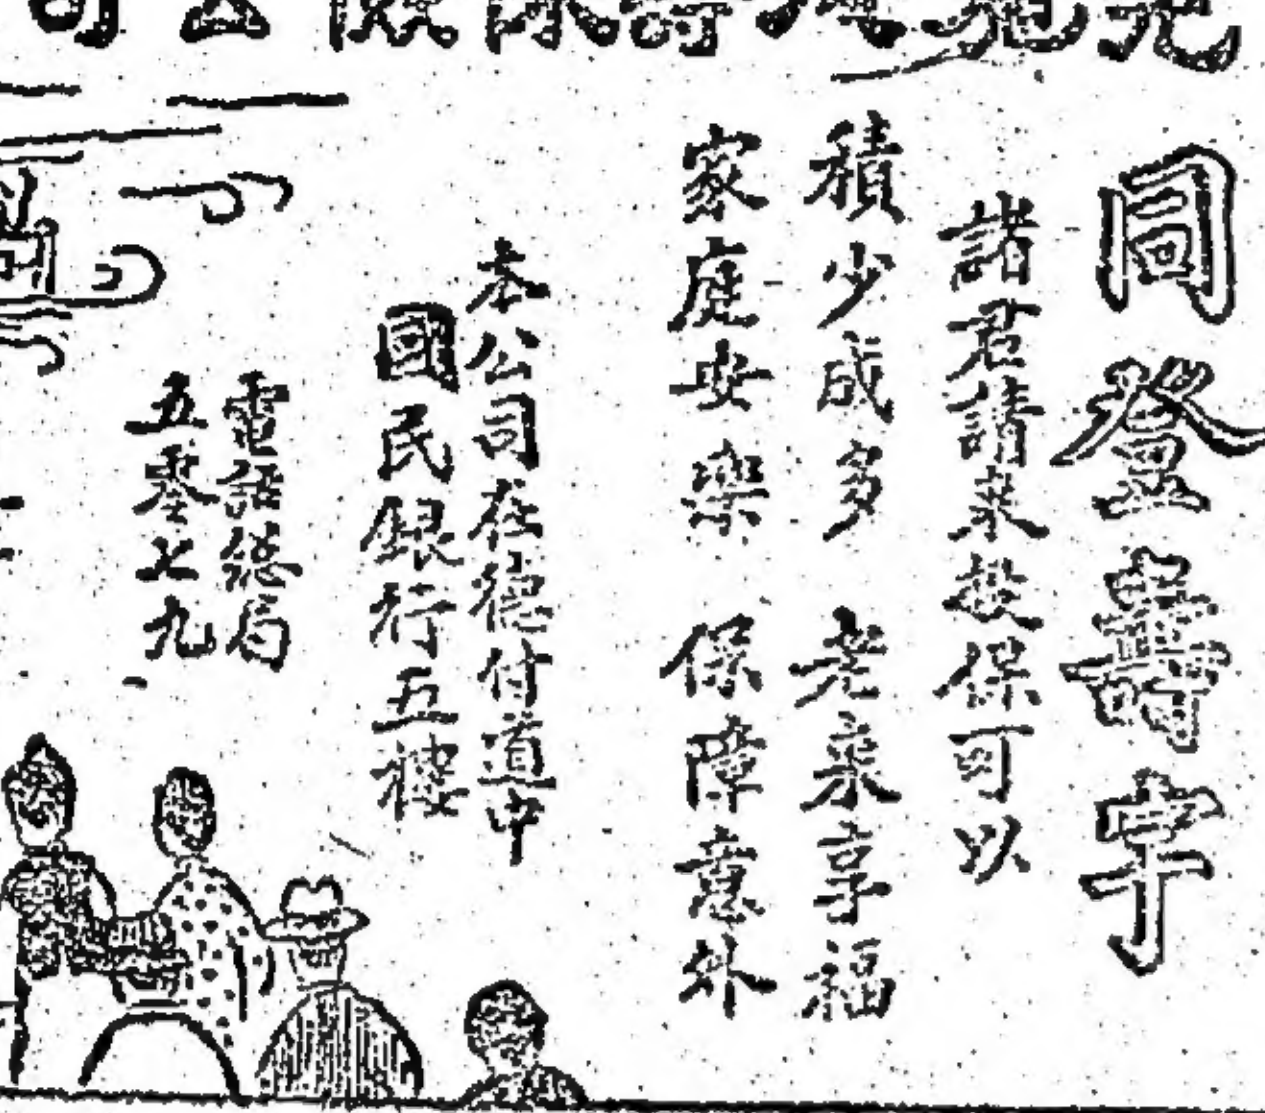 同登壽宇
諸君請來投保可以
積少成多 老來享福
家庭安樂 保障意外
本公司在德付道中
國民銀行五樓
電話總局
五零七九